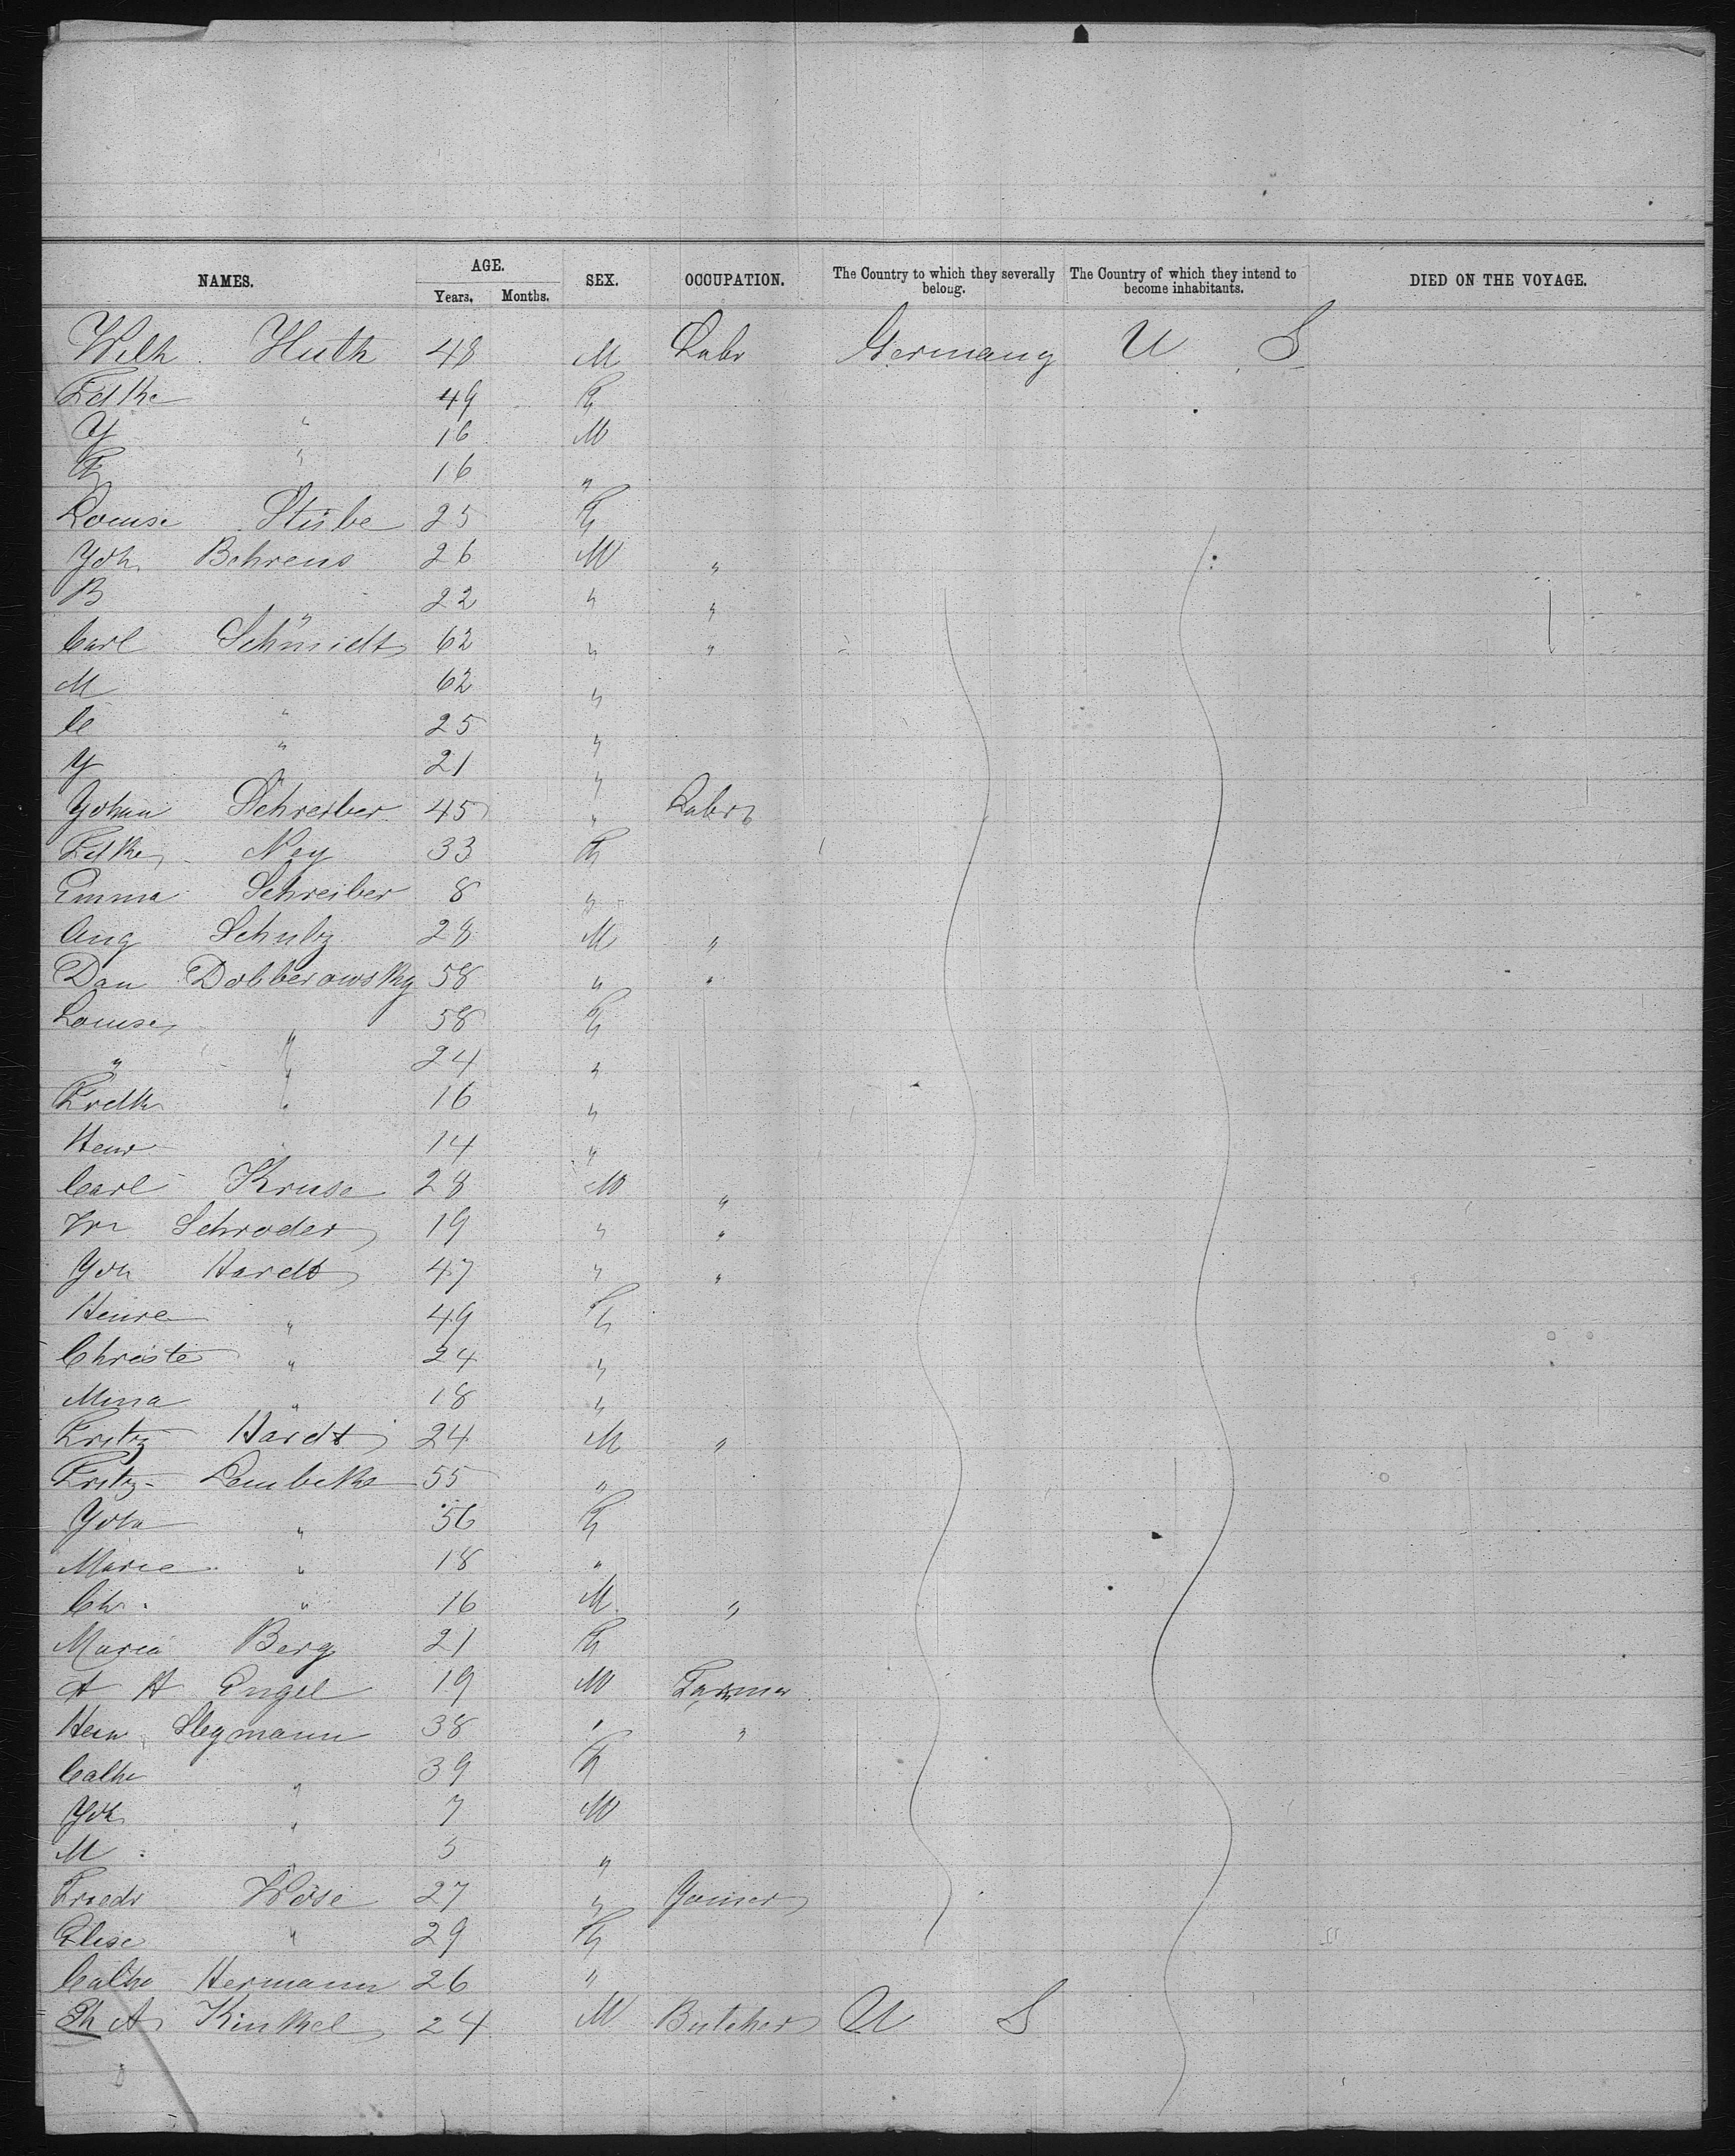 NAMES. AGE. SEX. OCCUPATION. The Country to which they severally belong. The Country of which they intend to become inhabitants. DIED ON THE VOYAGE.
Years. Months.
Wilh Huth 48 M Labr Germany U S
Fdke 49 F
J " 16 M
F " 16 "
Louise Stübe 25 F
Joh Behrens 26 M "
B " 22 " "
Carl Schmidt 62 " "
M " 62 "
C " 25 "
J " 21 "
Johan Schreiber 45 " Labr
Fdke Ney 33 F
Emma Schreiber 8 "
Aug Schulz 28 M "
Dan Dobberowsky 58 " "
Louise " 58 F
" " 24 "
Frdke " 16 "
Henr " 14 "
Carl Kruse 28 M "
Schroder 19 " "
Joh Hardt 47 " "
Henre " 49 F
Christe " 24 "
Mina " 18 "
Fritz Hardt 24 M "
Fritz Lembcke 55 "
Joha " 56 F
Marie " 18 "
Ch. " 16 M "
Maria Berg 21 F
A H Engel 19 M Farmer
Henr Stegmann 38 " "
Cathe " 39 F
Joh " 7 M
M " 5 "
Friedr Wöse 27 " Joiner
Elise " 29 F
Cathe Hermann 26 "
Ph A Kinkel 24 M Butcher U S